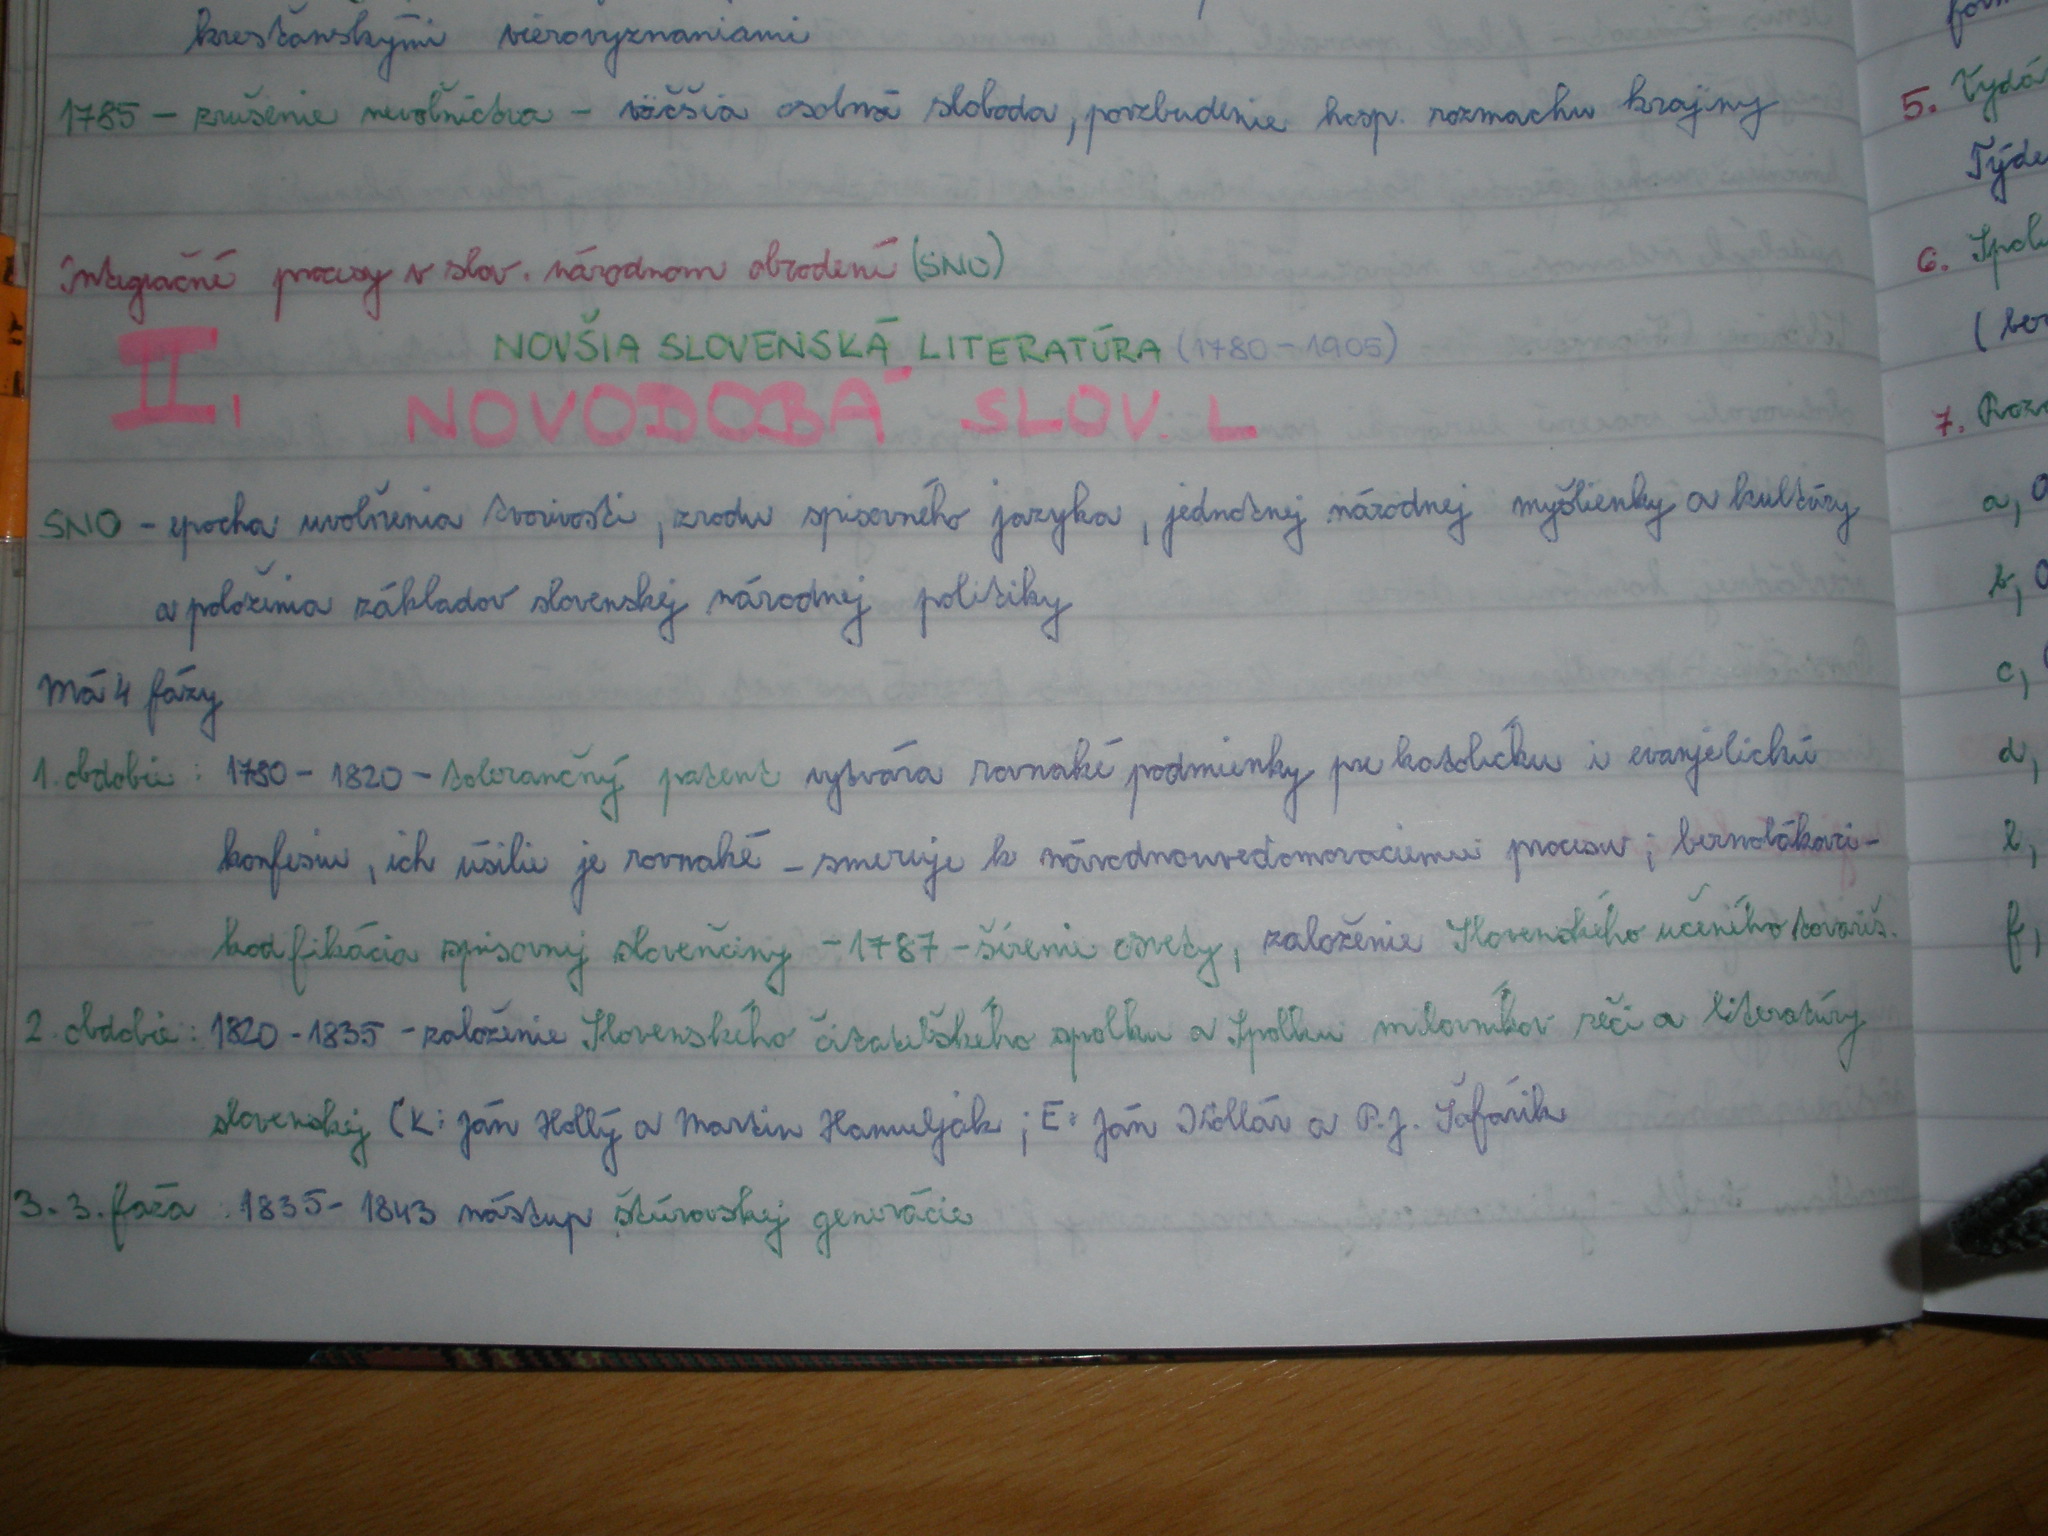 kresťanskými vierovyznaniami
1785 - zrušenie nevoľníctva - väčšia osobná sloboda, povzbudenie hosp. rozmachu krajiny
integračné procesy v slov. národnom obrodení (SNO)
NOVŠIA SLOVENSKÁ LITERATÚRA (1780-1905)
II, NOVODOBÁ SLOV. L
SNO - epocha uvoľnenia tvorivosti, zrodu spisovného jazyka, jednotnej národnej myšlienky a kultúry
a položenia základov slovenskej národnej politiky
Má 4 fázy
1. obdobie: 1780 - 1820 - tolerančný patent vytvára rovnaké podmienky pre katolícku i evanjelickú
konfesiu, ich úsilie je rovnaké - smeruje k národnouvedomovaciemu procesu; bernolákovci -
kodifikácia spisovnej slovenčiny - 1787 - šírenie osvety, založenie Slovenského učeného tovariš.
2. obdobie: 1820 - 1835 - založenie Slovenského čitateľského spolku a Spolku milovníkov reči a literatúry
slovenskej (K: Ján Hollý a Martin Hamuljak; E: Ján Kollár a P.J. Šafárik
3. 3. fáza: 1835 - 1843 nástup štúrovskej generácie
5. Vydá
Týde
6. Spolu
(ber
7. Rozv
a,
b,
c,
d,
e,
f,